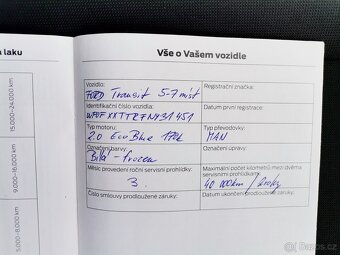 a laku
Vše o Vašem vozidle
Vozidlo:
FORD Transit 5-7 míst
Registrační značka:
Identifikační číslo vozidla:
Datum první registrace:
Typ motoru:
2.0 EcoBlue
Typ převodovky:
MAN
Označení barvy:
Bílá - frozen
Označení úpravy:
Měsíc provedení roční servisní prohlídky:
3.
Maximální počet kilometrů mezi dvěma servisními prohlídkami:
40 000km / 2roky
Číslo smlouvy prodloužené záruky:
Datum ukončení prodloužené záruky:
15.000–24.000 km
9.000–16.000 km
5.000–8.000 km